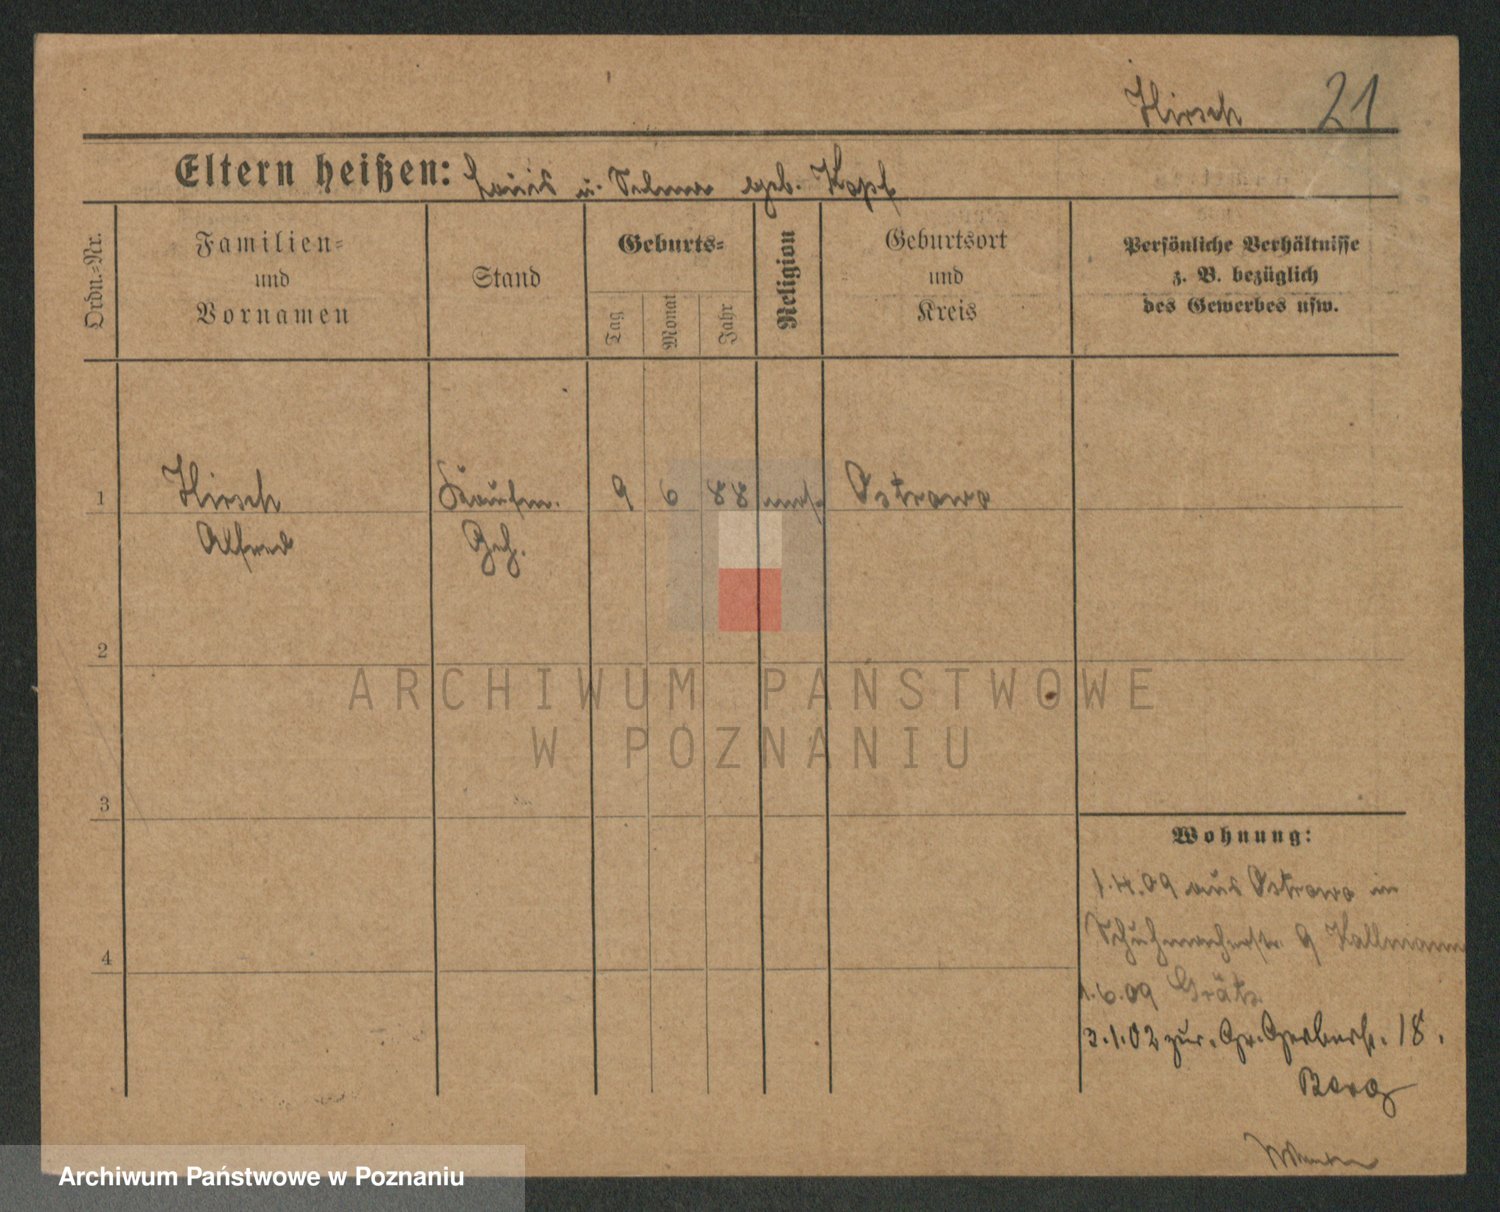 Hirsch 21
Eltern heißen: Louis u. Selma geb. Kopf
Ordn.-Nr.
Familien-
und
Vornamen
Stand
Geburts-
Tag
Monat
Jahr
Religion
Geburtsort
und
Kreis
Persönliche Verhältnisse
z. B. bezüglich
des Gewerbes usw.
1 Hirsch Kaufm. 9 6 88 mos. Ostrowo
Alfred Geh.
2
3
4
Wohnung:
1.4.09 aus Ostrowo in
Schuhmacherstr. 9 Kallmann
1.6.09 Grätz
3.1.02 zur. Gr. Gerberstr. 18.
ARCHIWUM PAŃSTWOWE
W POZNANIU
Archiwum Państwowe w Poznaniu